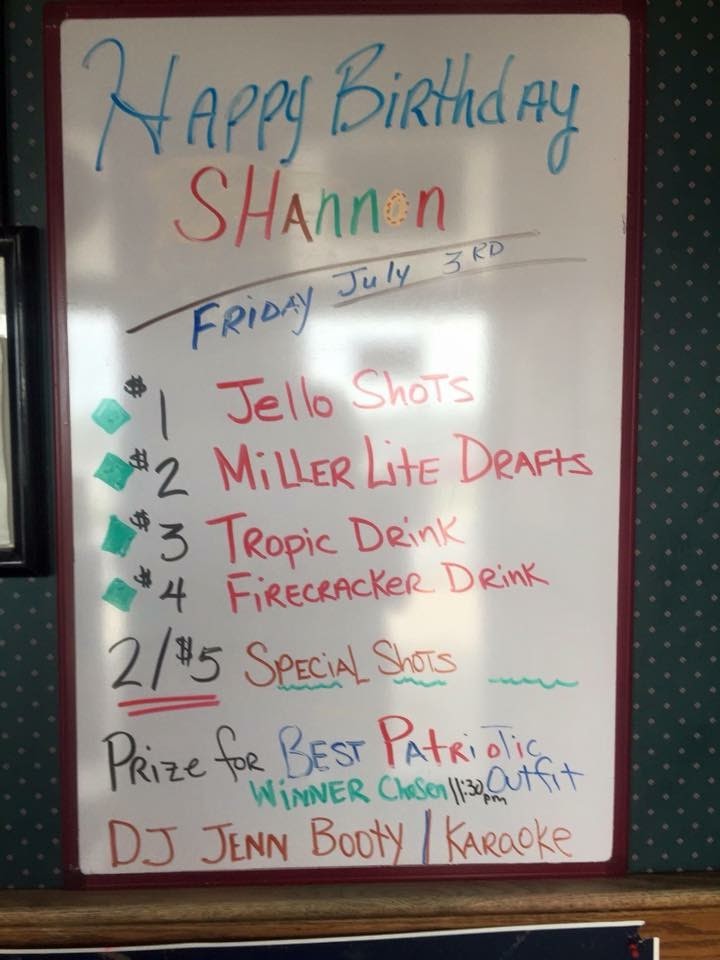 HAPPY BirthdAy
SHAnnon
FRIDAY July 3RD
$1 Jello SHOTS
$2 MiLLER LitE DRAFts
$3 TROPIC DRINK
$4 FiRECRACKER DRINK
2/$5 SPECIAL SHOTS
PRize foR BEST PAtRiOTIC
OUtfit
WINNER ChoSen 11:30pm
DJ JENN BOOTY / KARAOKE